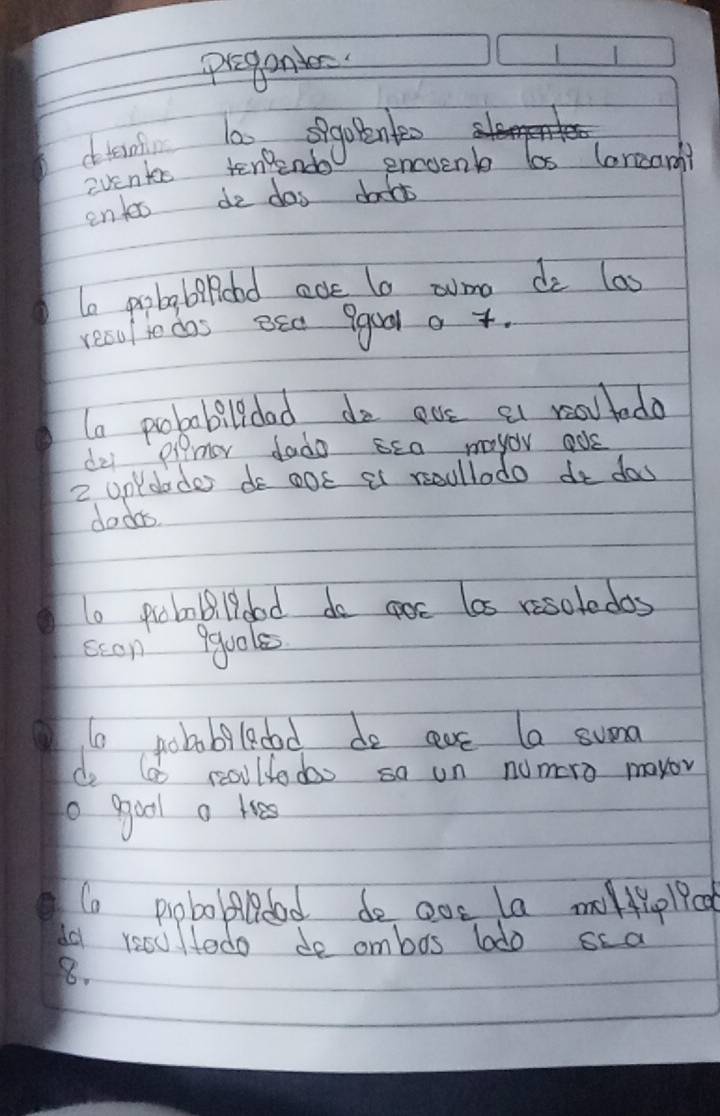 Pregontos:
determin los siguientes elementos
eventos teniendo encuenta los lanzami
entos de dos dados
la probabilidad que la suma de las
resultados sea igual a 7.
la probabilidad de que el resultado
del primer dado sea mayor que
2 unidades de que el resultado de dos
dados.
la probabilidad de que los resoltados
sean iguales
la probabilidad de que la suma
de los resultados sa un numero mayor
o igual a tres
la probabilidad de que la multiplicad
del resultado de ambos lado sea
8.